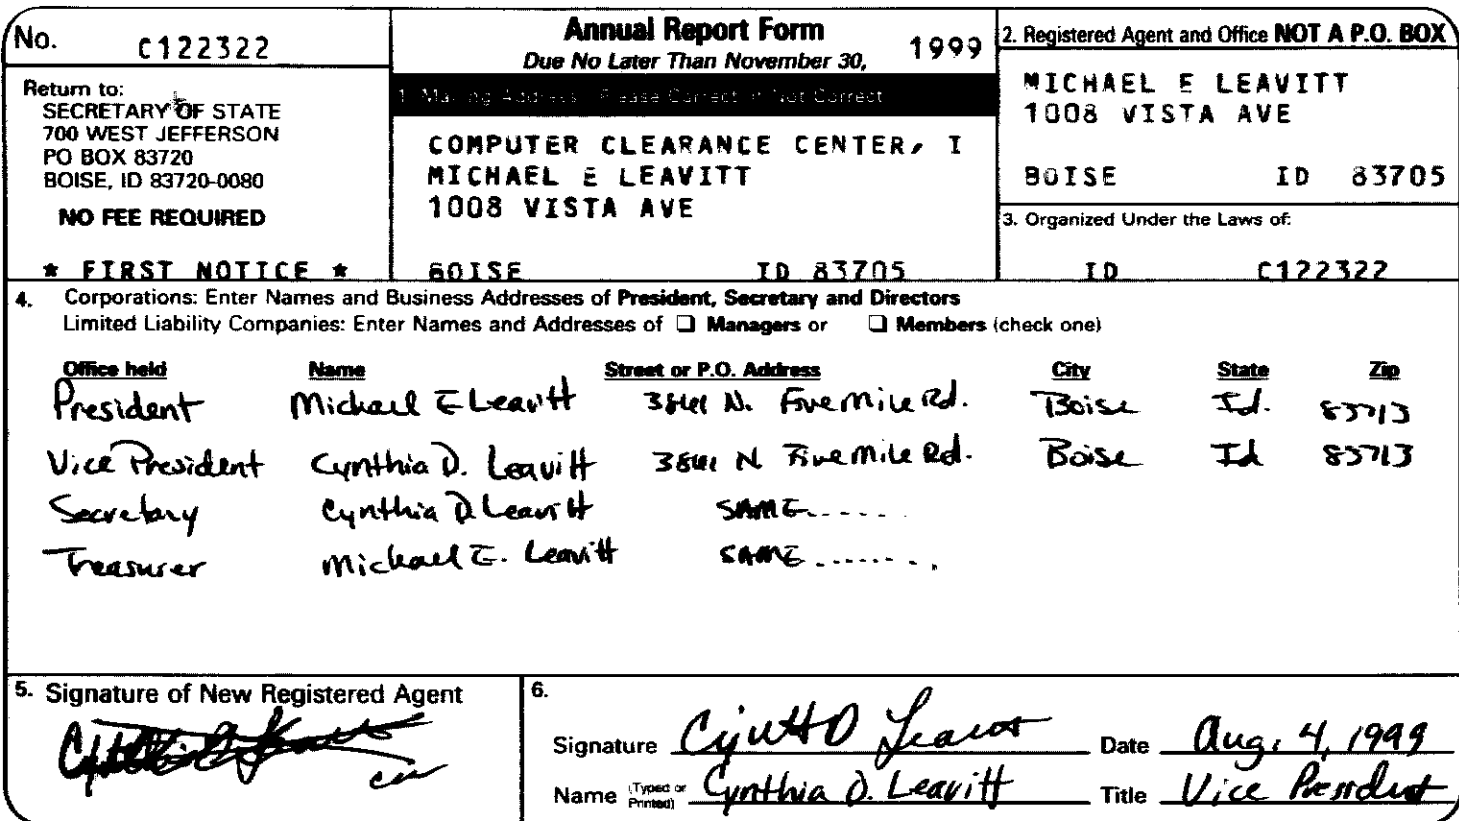 No. C122322
Return to:
SECRETARY OF STATE
700 WEST JEFFERSON
PO BOX 83720
BOISE, ID 83720-0080
NO FEE REQUIRED
* FIRST NOTICE *
Annual Report Form
Due No Later Than November 30, 1999
1. Mailing Address: Please Correct if Not Correct
COMPUTER CLEARANCE CENTER, I
MICHAEL E LEAVITT
1008 VISTA AVE
BOISE ID 83705
2. Registered Agent and Office NOT A P.O. BOX
MICHAEL E LEAVITT
1008 VISTA AVE
BOISE ID 83705
3. Organized Under the Laws of:
ID C122322
4. Corporations: Enter Names and Business Addresses of President, Secretary and Directors
Limited Liability Companies: Enter Names and Addresses of ☐ Managers or ☐ Members (check one)
Office held Name Street or P.O. Address City State Zip
President Michael E Leavitt N. Five Mile Rd. Boise Id. 83713
Vice President Cynthia D. Leavitt N Five Mile Rd. Boise Id 83713
Secretary Cynthia D Leavitt SAME.......
Treasurer Michael E. Leavitt SAME........
5. Signature of New Registered Agent
6.
Signature Date Aug. 4, 1999
Name (Typed or Printed) Cynthia D. Leavitt Title Vice President